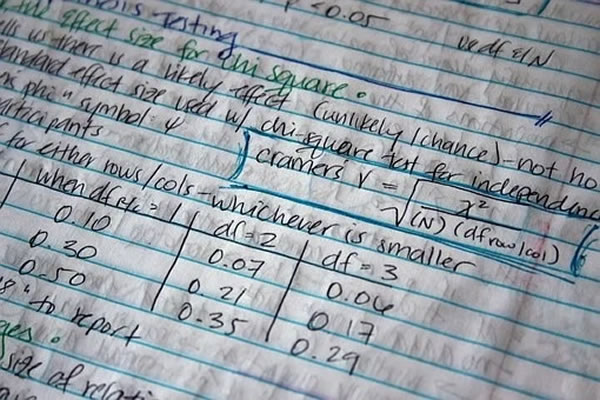 p < 0.05
testing
effect size for chi square.
us there is a likely effect (unlikely / chance) - not
effect size used w/ chi-square test for independence
phi" symbol:
participants
cramers V = √ χ² / (N) (df row/col)
for either rows/cols - whichever is smaller
when df = 1 df = 2 df = 3
0.10 0.07 0.06
0.30 0.21 0.17
0.50 0.35 0.29
" to report
size of